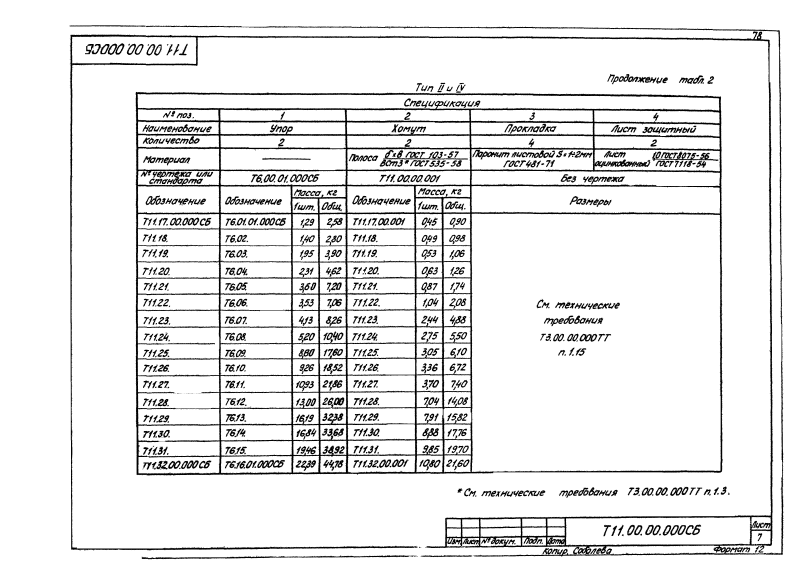 78
Т11 00 00 000СБ
Продолжение табл. 2
Тип II и IV
Спецификация
№ поз. 1 2 3 4
Наименование Упор Хомут Прокладка Лист защитный
Количество 2 2 4 2
Материал — Полоса б×в ГОСТ 103-57 / Вст3* ГОСТ 535-58 Паронит листовой S=1÷2мм ГОСТ 481-71 Лист оцинкованный 10 ГОСТ 8075-56 / ГОСТ 7118-54
№ чертежа или стандарта Т6.00.01.000СБ Т11.00.00.001 Без чертежа
Обозначение Обозначение Масса, кг Обозначение Масса, кг Размеры
1шт. Общ. 1шт. Общ.
Т11.17.00.000СБ Т6.01.01.000СБ 1,29 2,58 Т11.17.00.001 0,45 0,90
Т11.18. Т6.02. 1,40 2,80 Т11.18. 0,49 0,98
Т11.19. Т6.03. 1,95 3,90 Т11.19. 0,53 1,06
Т11.20. Т6.04. 2,31 4,62 Т11.20. 0,63 1,26
Т11.21. Т6.05. 3,60 7,20 Т11.21. 0,87 1,74
Т11.22. Т6.06. 3,53 7,06 Т11.22. 1,04 2,08
Т11.23. Т6.07. 4,13 8,26 Т11.23. 2,44 4,88
Т11.24. Т6.08. 5,20 10,40 Т11.24. 2,75 5,50
Т11.25. Т6.09. 8,80 17,60 Т11.25. 3,05 6,10
Т11.26. Т6.10. 9,26 18,52 Т11.26 3,36 6,72
Т11.27. Т6.11. 10,93 21,86 Т11.27. 3,70 7,40
Т11.28. Т6.12. 13,00 26,00 Т11.28. 7,04 14,08
Т11.29. Т6.13. 16,19 32,38 Т11.29. 7,91 15,82
Т11.30. Т6.14. 16,84 33,68 Т11.30. 8,88 17,76
Т11.31. Т6.15. 19,46 38,92 Т11.31. 9,85 19,70
Т11.32.00.000СБ Т6.16.01.000СБ 22,39 44,78 Т11.32.00.001 10,80 21,60
См. технические
требования
Т3.00.00.000ТТ
п.1.15
* См. технические требования Т3.00.00.000ТТ п.1.3.
Изм. Лист № докум. Подп. Дата
Т11.00.00.000СБ
Лист
7
Копир. Соболева
Формат 12